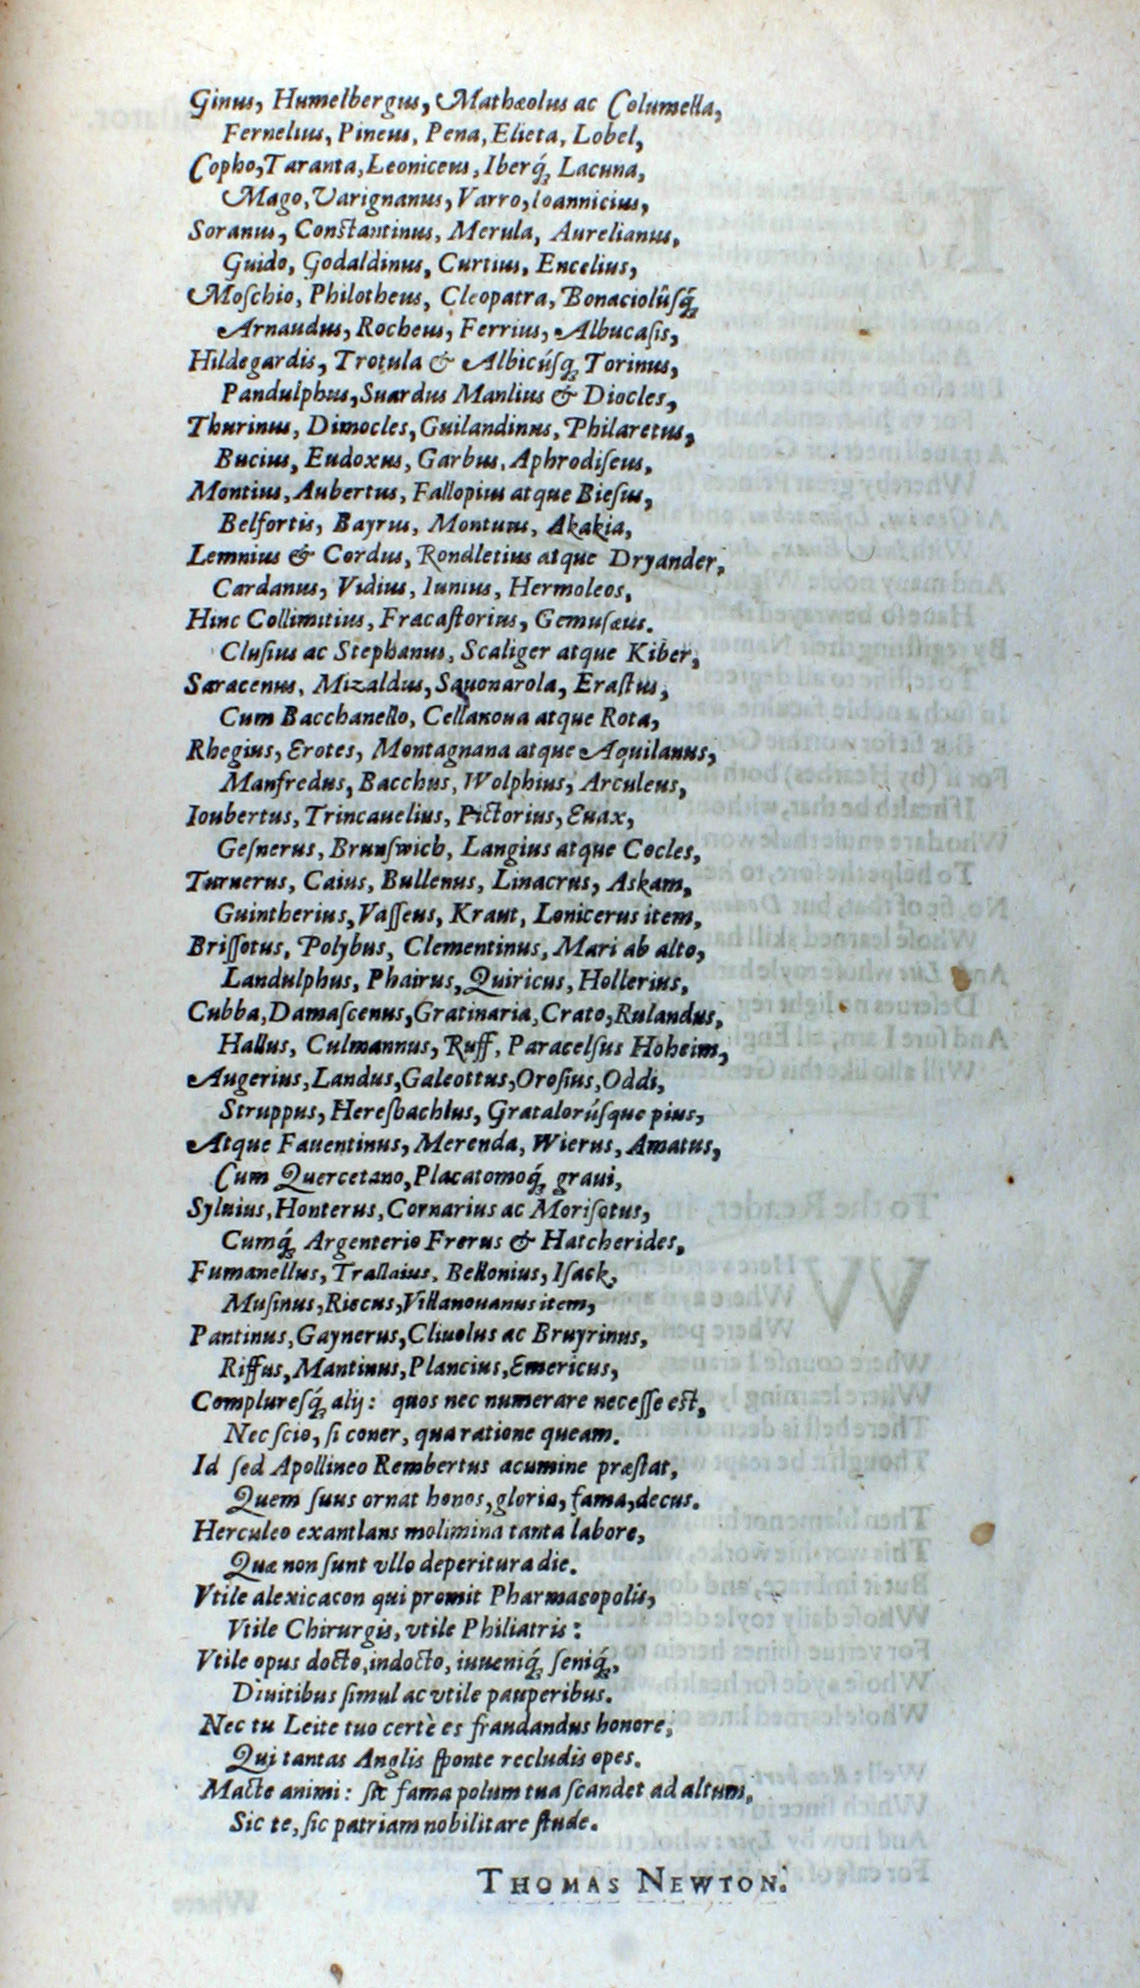 Ginus, Humelbergus, Mathæolus ac Columella,
Fernelius, Pineus, Pena, Elieta, Lobel,
Copho, Taranta, Leonicenus, Iberq́; Lacuna,
Mago, Varignanus, Varro, Ioannicius,
Soranus, Constantinus, Merula, Aurelianus,
Guido, Godaldinus, Curtius, Encelius,
Moſchio, Philotheus, Cleopatra, Bonaciolúſq́;
Arnaudus, Rocheus, Ferrius, Albucaſis,
Hildegardis, Trotula & Albicúſq; Torinus,
Pandulphus, Suardus Manlius & Diocles,
Thurinus, Dimocles, Guilandinus, Philaretus,
Bucius, Eudoxus, Garbus, Aphrodiſeus,
Montius, Aubertus, Fallopius atque Bieſius,
Belfortis, Bayrus, Montuus, Akakia,
Lemnius & Cordus, Rondletius atque Dryander,
Cardanus, Vidius, Iunius, Hermoleos,
Hinc Collimitius, Fracaſtorius, Gemuſæus.
Cluſius ac Stephanus, Scaliger atque Kiber,
Saracenus, Mizaldus, Sauonarola, Eraſtus,
Cum Bacchanello, Cellanoua atque Rota,
Rhegius, Erotes, Montagnana atque Aquilanus,
Manfredus, Bacchus, Wolphius, Arculeus,
Ioubertus, Trincauelius, Pictorius, Euax,
Geſnerus, Brunſwich, Langius atque Cocles,
Turnerus, Caius, Bullenus, Linacrus, Askam,
Guintherius, Vaſſeus, Kraut, Lonicerus item,
Briſſotus, Polybus, Clementinus, Mari ab alto,
Landulphus, Phairus, Quiricus, Hollerius,
Cubba, Damaſcenus, Gratinaria, Crato, Rulandus,
Hallus, Culmannus, Ruff, Paracelſus Hoheim,
Augerius, Landus, Galeottus, Oroſius, Oddi,
Struppus, Heresbachius, Gratalorúſque pius,
Atque Fauentinus, Merenda, Wierus, Amatus,
Cum Quercetano, Placatomoq́; graui,
Syluius, Honterus, Cornarius ac Moriſotus,
Cumq́; Argenterio Frerus & Hatcherides,
Fumanellus, Trallaius, Bellonius, Iſack,
Muſinus, Riocus, Villanouanus item,
Pantinus, Gaynerus, Cliuolus ac Bruyrinus,
Riffus, Mantinus, Plancius, Emericus,
Complureſq́; alij: quos nec numerare neceſſe est,
Nec ſcio, ſi coner, qua ratione queam.
Id ſed Apollineo Rembertus acumine præſtat,
Quem ſuus ornat honos, gloria, fama, decus.
Herculeo exantlans molimina tanta labore,
Quæ non ſunt vllo deperitura die.
Vtile alexicacon qui promit Pharmacopolis,
Vtile Chirurgis, vtile Philiatris:
Vtile opus docto, indocto, iuueniq́; ſeniq́;,
Diuitibus ſimul ac vtile pauperibus.
Nec tu Leite tuo certè es fraudandus honore,
Qui tantas Anglis ſponte recludis opes.
Macte animi: ſic fama polum tua ſcandet ad altum,
Sic te, ſic patriam nobilitare ſtude.
THOMAS NEWTON.